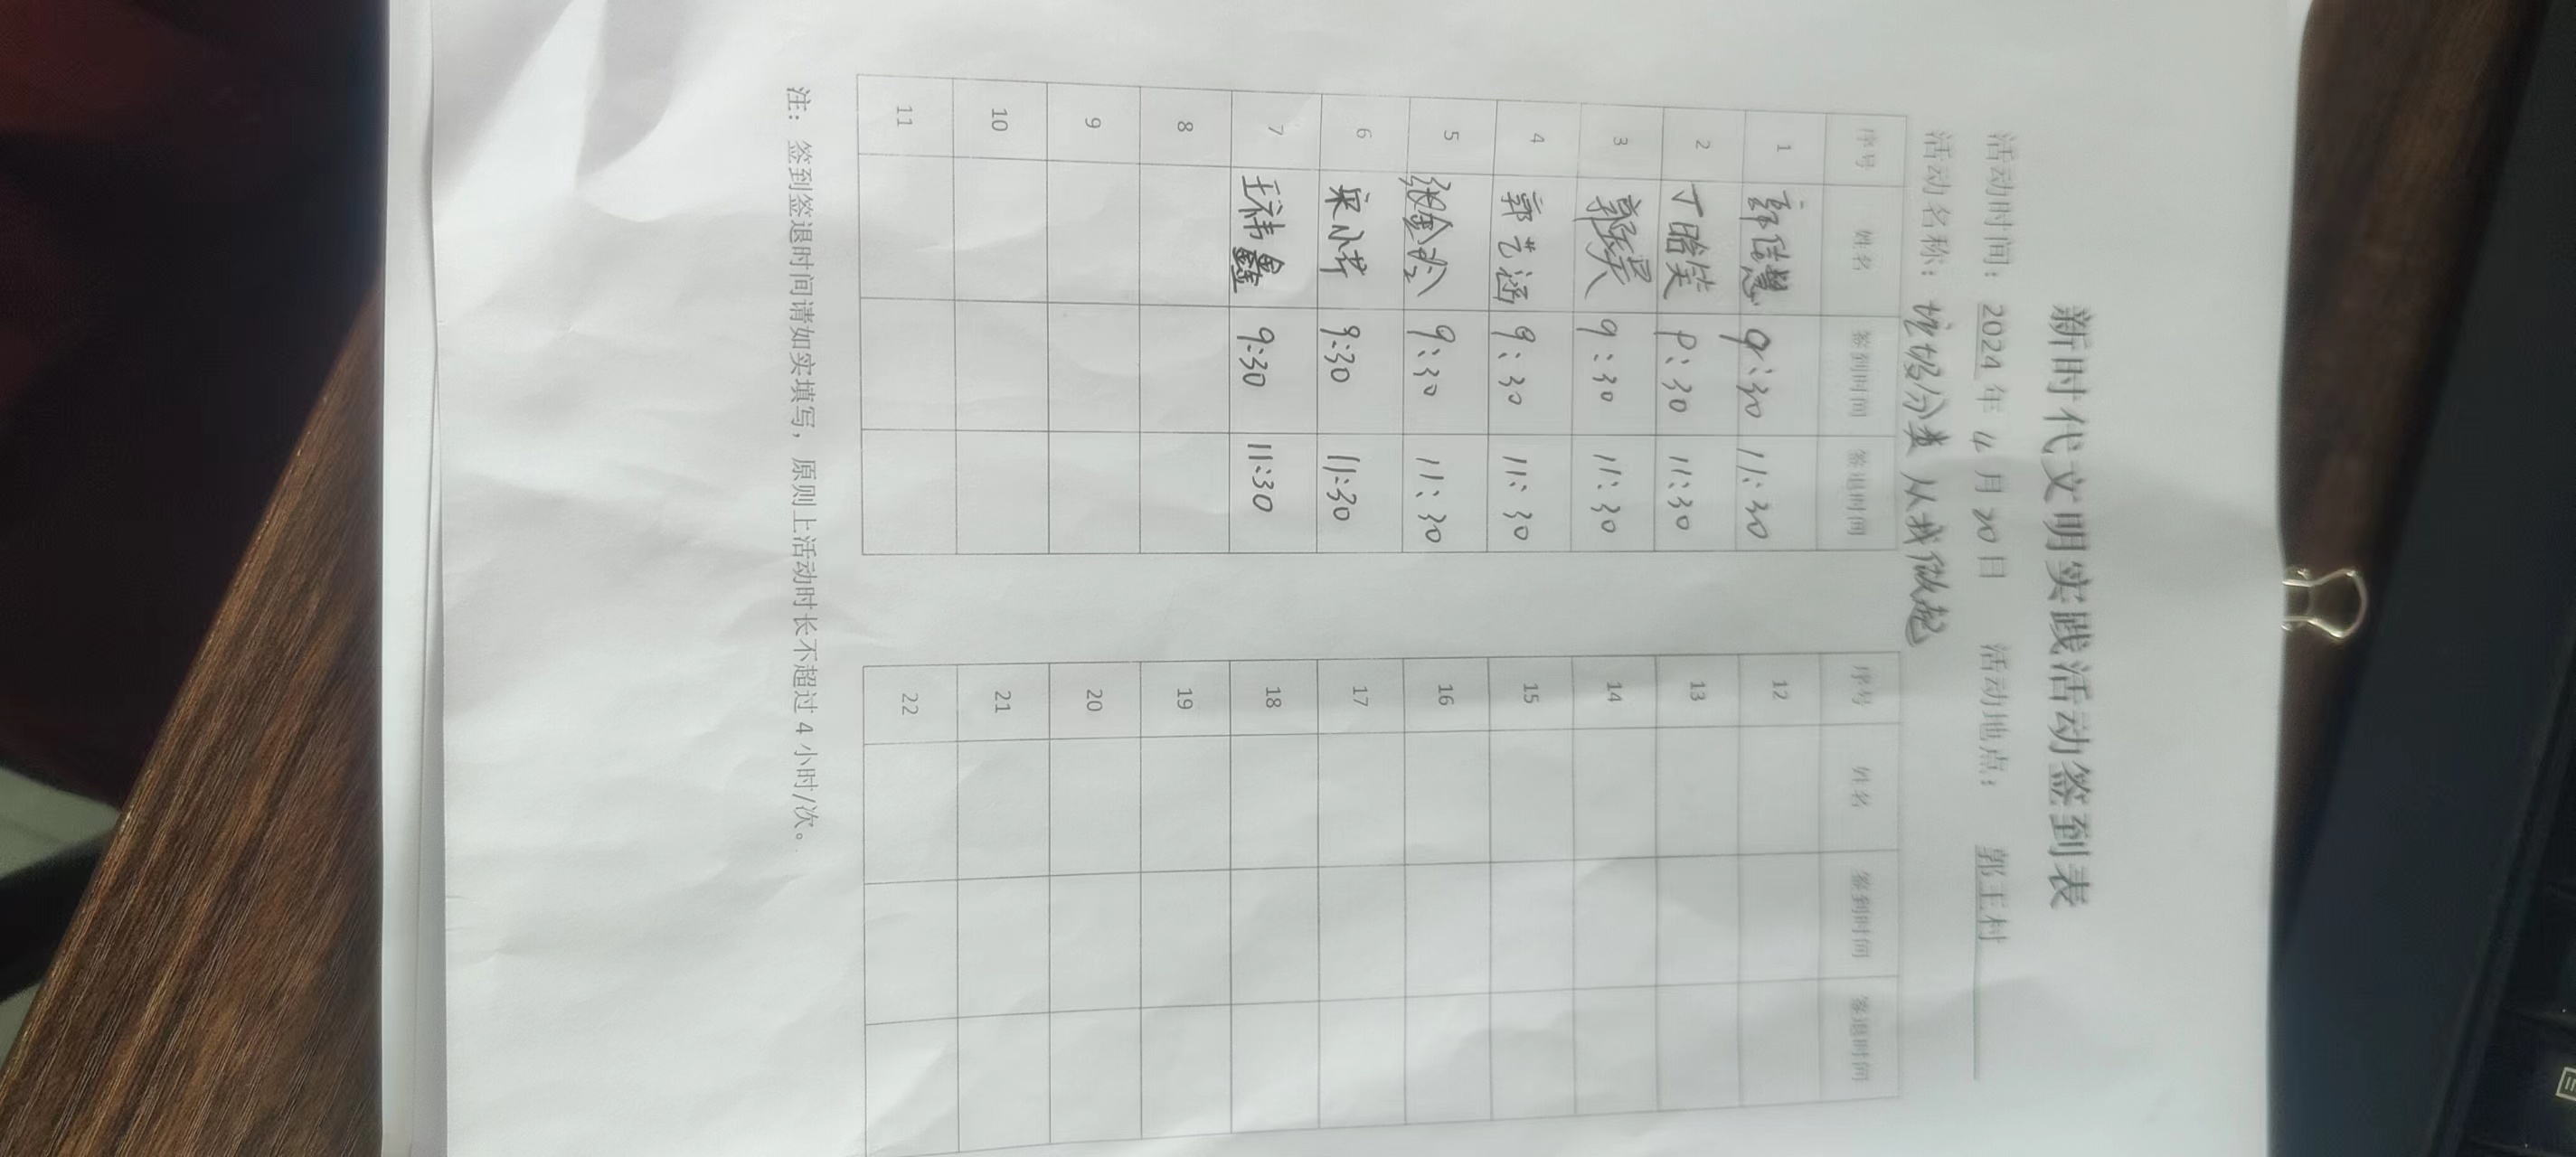 新时代文明实践活动签到表
活动时间： 2024 年 4 月 20 日 活动地点： 郭王村
活动名称： 垃圾分类 从我做起
序号 姓名 签到时间 签退时间 序号 姓名 签到时间 签退时间
1 9:30 11:30 12
2 丁晗笑 9:30 11:30 13
3 郭昊 9:30 11:30 14
4 郭艺涵 9:30 11:30 15
5 9:30 11:30 16
6 9:30 11:30 17
7 王祎鑫 9:30 11:30 18
8 19
9 20
10 21
11 22
注： 签到签退时间请如实填写，原则上活动时长不超过 4 小时/次。